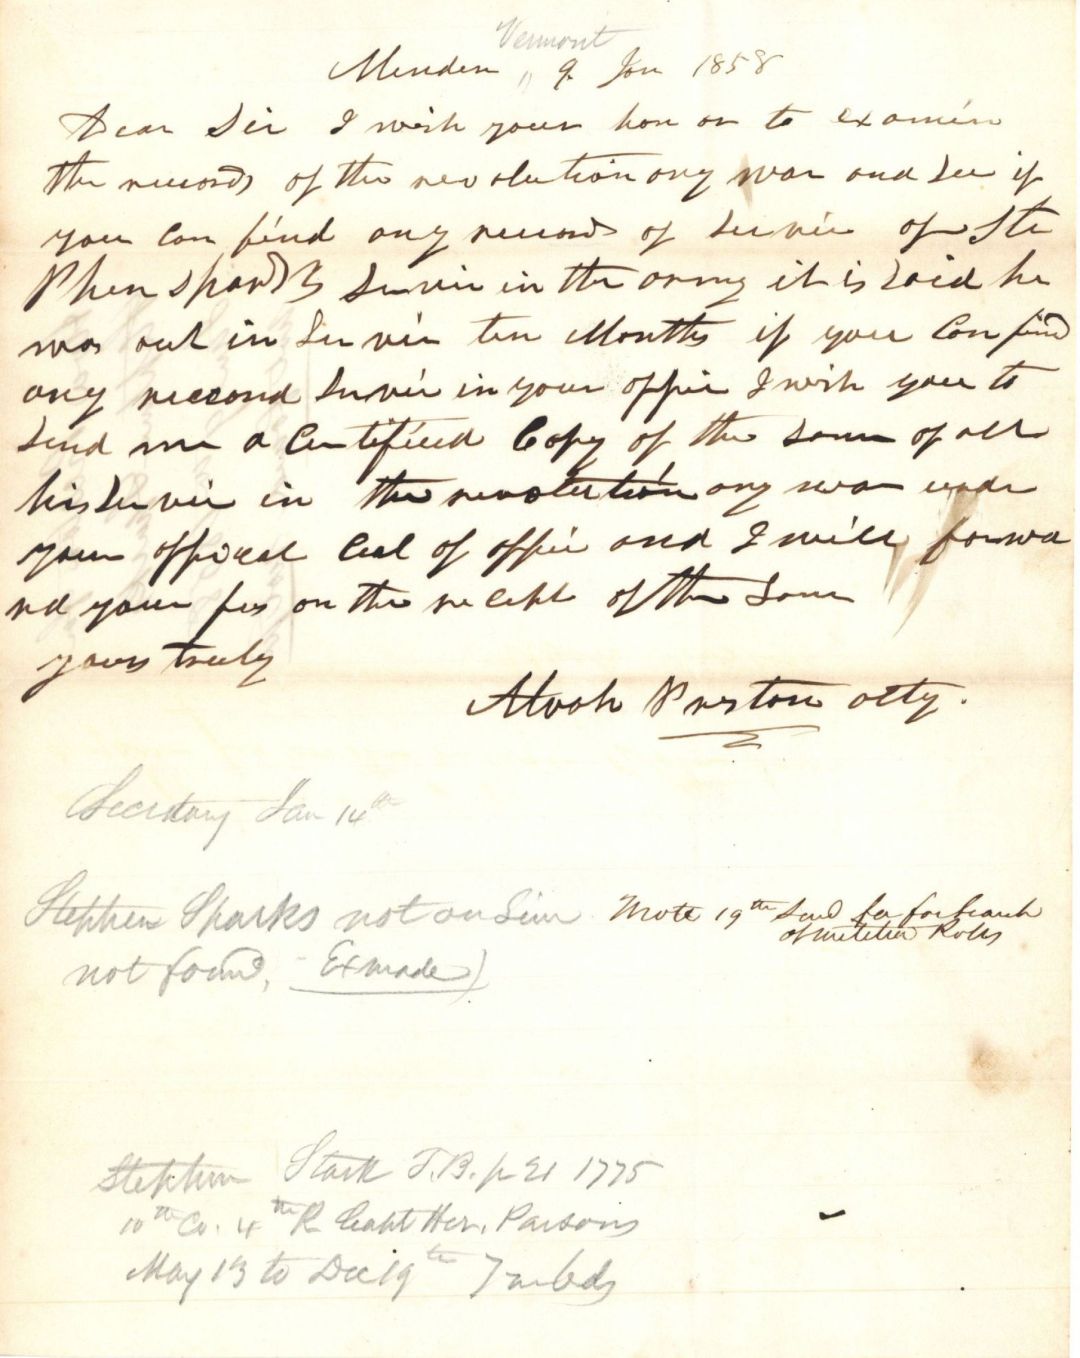 Vermont
Mendon " 9 Jan 1858
Dear Sir I wish your hon or to examin
the records of the revolution ary war and See if
you can find any records of Servic of Ste
Phen Sparks Servic in the army it is Said he
was out in Servic ten Months if you Can find
any reccord Servic in your offic I wish you to
Send me a Certified Copy of the Same of all
his Servic in the revolution ary war unde
your official Ceal of offic and I will forwa
rd your fes on the receipt of the Same
yours truly
Alvah Preston atty.
Secretary Jan 14th
Stephen Sparks not on Sim
not found, Ex made)
Wrote 19th Send fee for Search
of militia Rolls
Stephen Stark T.B. p 21 1775
10th Co. 4th R Capt Her. Parsons
May 13 to Dec 19th